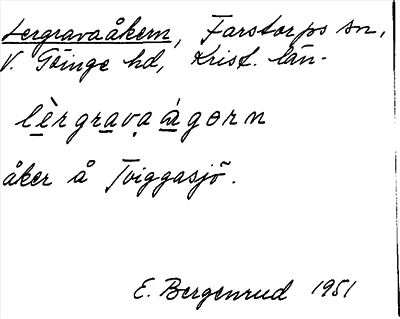 Lergravaåkern, Farstorps sn,
V. Göinge hd, Krist. län.
lèrgrava ågorn
åker å Tviggasjö.
E. Bergenrud 1951